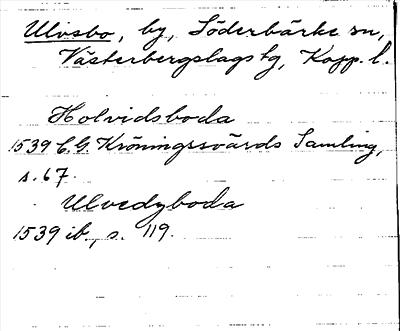 Ulvsbo, by, Söderbärke sn,
Västerbergslags tg, Kopp. l.
Holvidsboda
1539 C.G. Kröningssvärds Samling,
s. 67.
Ulvedzboda
1539 ib., s. 119.